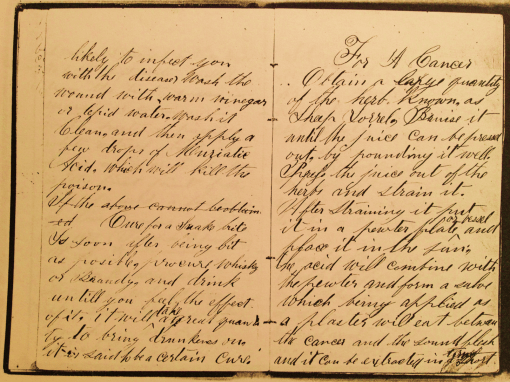 likely to infect you
with the disease. Wash the
wound with warm vinegar
or tepid water. Wash it
Clean. and then apply a
few drops of Muriatic
Acid. Which will kill the
poison.
If the above cannot be obtain
ed Cure for a Snake bite
As soon after being bit
as possible, procure Whisky
or Brandy, and drink
untill you feel the effect
of it. it will take a great quan
ty to bring drunkeness on.
it is said to be a certain Cure.
For A Cancer
Obtain a large quantity
of the herb Known as
Shap Sorrel, Bruise it
until the juice can be pressed
out, by pounding it well
Press the juice out of the
herbs and strain it.
After straining it put
it in a pewter plate, or vessel and
place it in the sun.
the acid will combine with
the pewter and form a salve
which being applied as
a plaster will eat between
the cancer and the sound flesh
and it can be extracted in a short